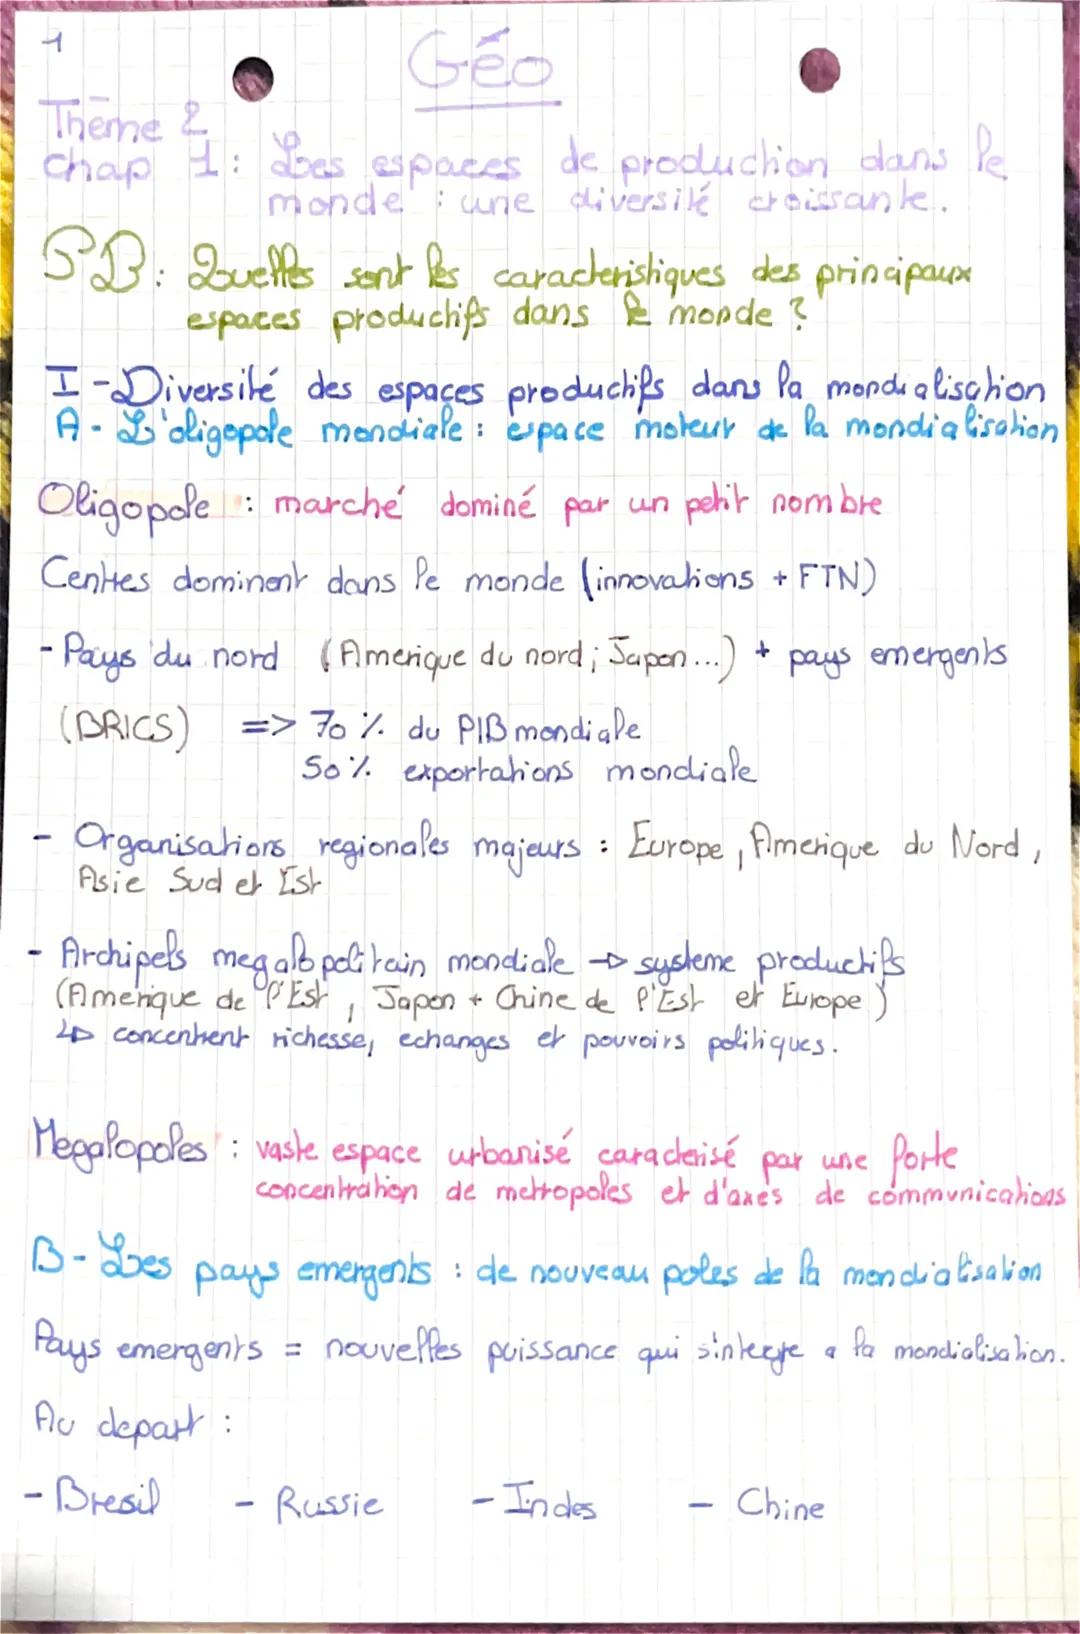 1
Géo
Thème 2
chap 1 : Les espaces de production dans le
monde : une diversité croissante.
PB : Quelles sont les caracteristiques des principaux
espaces productifs dans le monde ?
I - Diversité des espaces productifs dans la mondialisation
A - L'oligopole mondiale : espace moteur de la mondialisation
Oligopole : marché dominé par un petit nombre
Centres dominent dans le monde (innovations + FTN)
- Pays du nord (Amerique du nord ; Japon ...) + pays emergents
(BRICS) => 70 % du PIB mondiale
50 % exportations mondiale
- Organisations regionales majeurs : Europe, Amerique du Nord,
Asie Sud et Est
- Archipels megalopolitain mondiale → systeme productifs
(Amerique de l'Est, Japon + Chine de l'Est et Europe)
↳ concentrent richesse, echanges et pouvoirs politiques.
Megalopoles : vaste espace urbanisé caracterisé par une forte
concentration de metropoles et d'axes de communications
B - Les pays emergents : de nouveau poles de la mondialisation
Pays emergents = nouvelles puissance qui s'integre a la mondialisation.
Au depart :
- Bresil - Russie - Indes - Chine